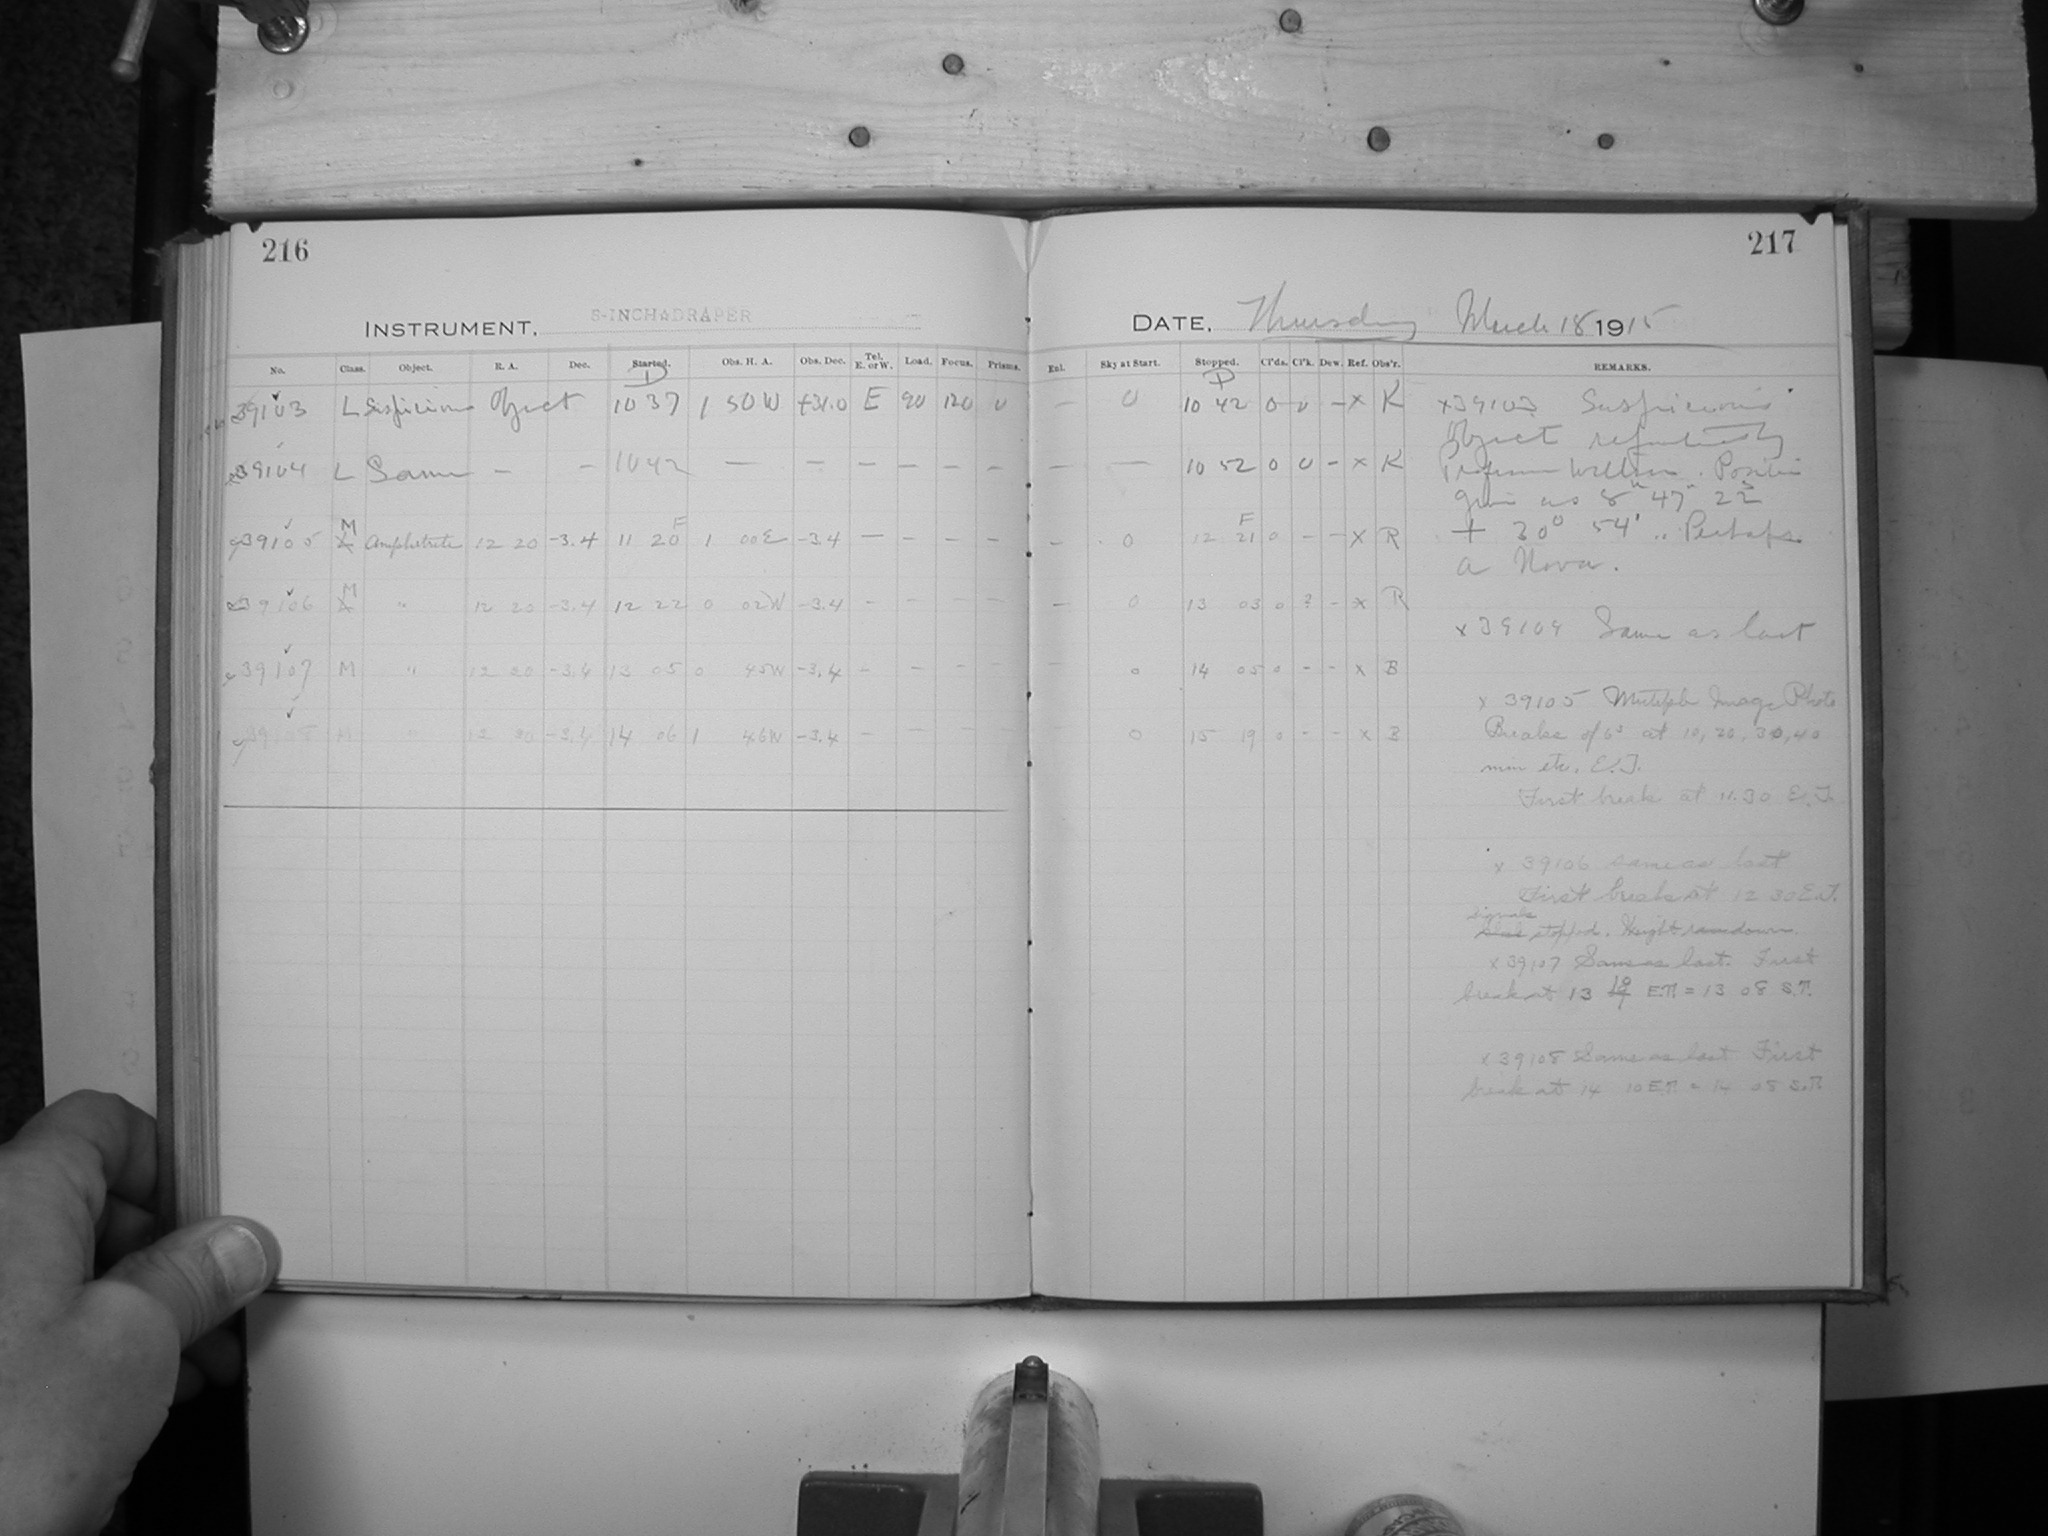 216
217
INSTRUMENT, 8-INCH DRAPER
DATE, Thursday March 18 1915
No. Class. Object. R. A. Dec. Started. Obs. H. A. Obs. Dec. Tel. E. or W. Load. Focus. Prisms. Enl. Sky at Start. Stopped. Cl'ds. Cl'k. Dew. Ref. Obs'r. REMARKS.
D D
39103 L Suspicious Object 10 37 1 50 W +31.0 E 90 120 0 — 0 10 42 0 0 — x K
39104 L Same — — 10 42 — — — — — — — — 10 52 0 0 — x K
F F
M
39105 Amphitrite 12 20 -3.4 11 20 1 00 E -3.4 — — — — — 0 12 21 0 — — x R
M
39106 " 12 20 -3.4 12 22 0 02 W -3.4 — — — — — 0 13 03 0 ? — x R
39107 M " 12 20 -3.4 13 05 0 45 W -3.4 — — — — — 0 14 05 0 — — x B
39108 M " 12 20 -3.4 14 06 1 46 W -3.4 — — — — — 0 15 19 0 — — x B
x39103 Suspicious
Object
Professor Position
given as 8h 47m 22s
+ 30° 54' .. Perhaps
a Nova.
x 39104 Same as last
x 39105 Multiple Image Photo
Breaks of 6s at 10, 20, 30, 40
min etc. E.T.
First break at 11.30 E.T.
x 39106 same as last
First break at 12 30 E.T.
signals
stopped. Weight ran down.
x 39107 Same as last. First
break at 13 10 E.T. = 13 08 S.T.
x 39108 Same as last First
break at 14 10 E.T. = 14 08 S.T.